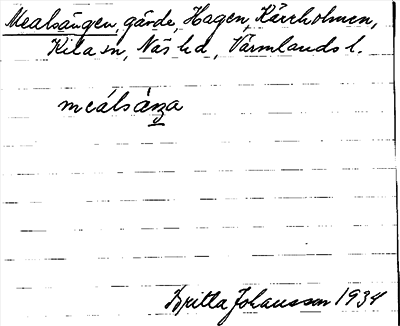 Mealsängen, gärde, Hagen, Kärrholmen,
Kila sn, Näs hd, Värmlands l.
meálsàŋa
Britta Johansson 1934